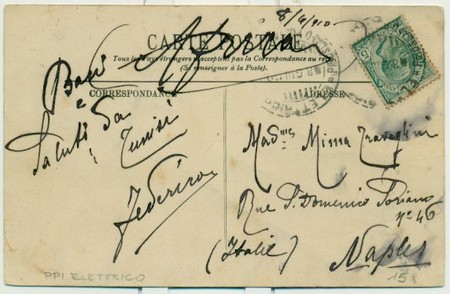 8/6/910
CARTE POSTALE
Tous les pays étrangers n'acceptent pas la Correspondance au recto.
(Se renseigner à la Poste)
CORRESPONDANCE
ADRESSE
Baci
e
Saluti da
Tunisi
Federico
Mad.me Mimma Travaglini
Rue S. Domenico Soriano
n° 46
(Italie)
Naples
PPI ELETTRICO
15